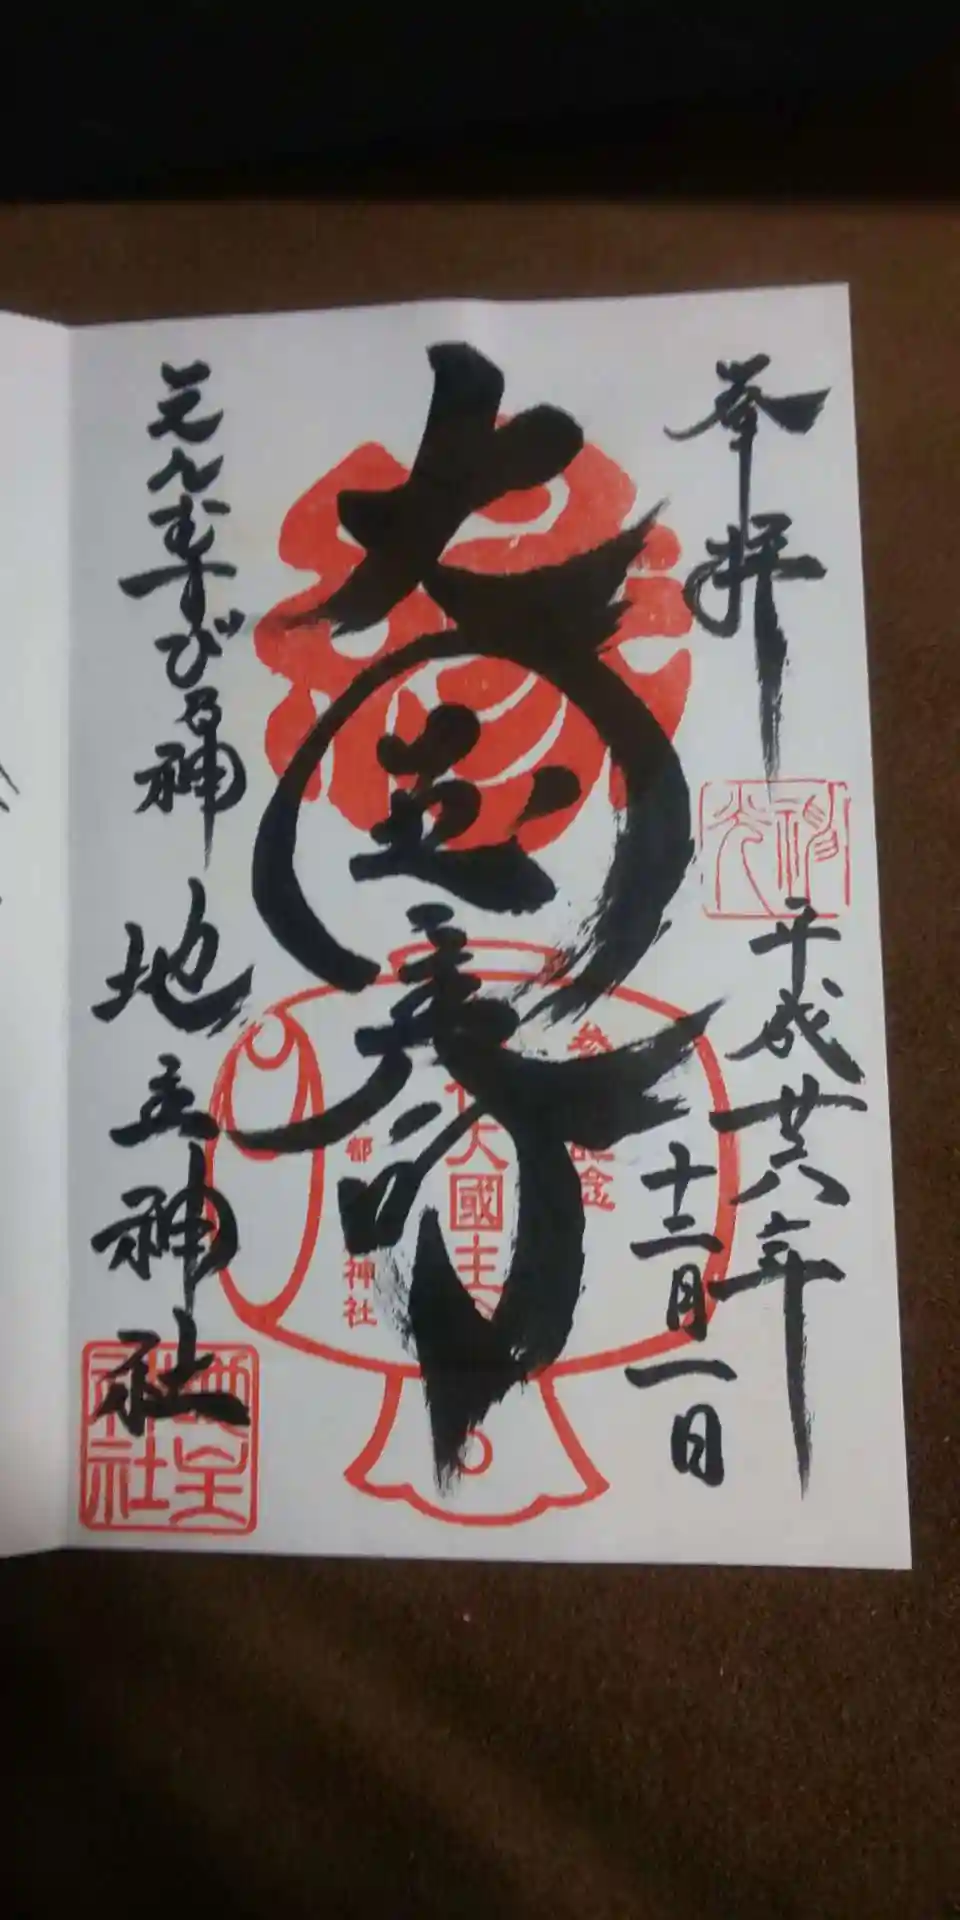 奉拝
平成廿六年
十二月一日
大国主命
えんむすびの神
地主神社
念
大國主
都
神社
地主神社